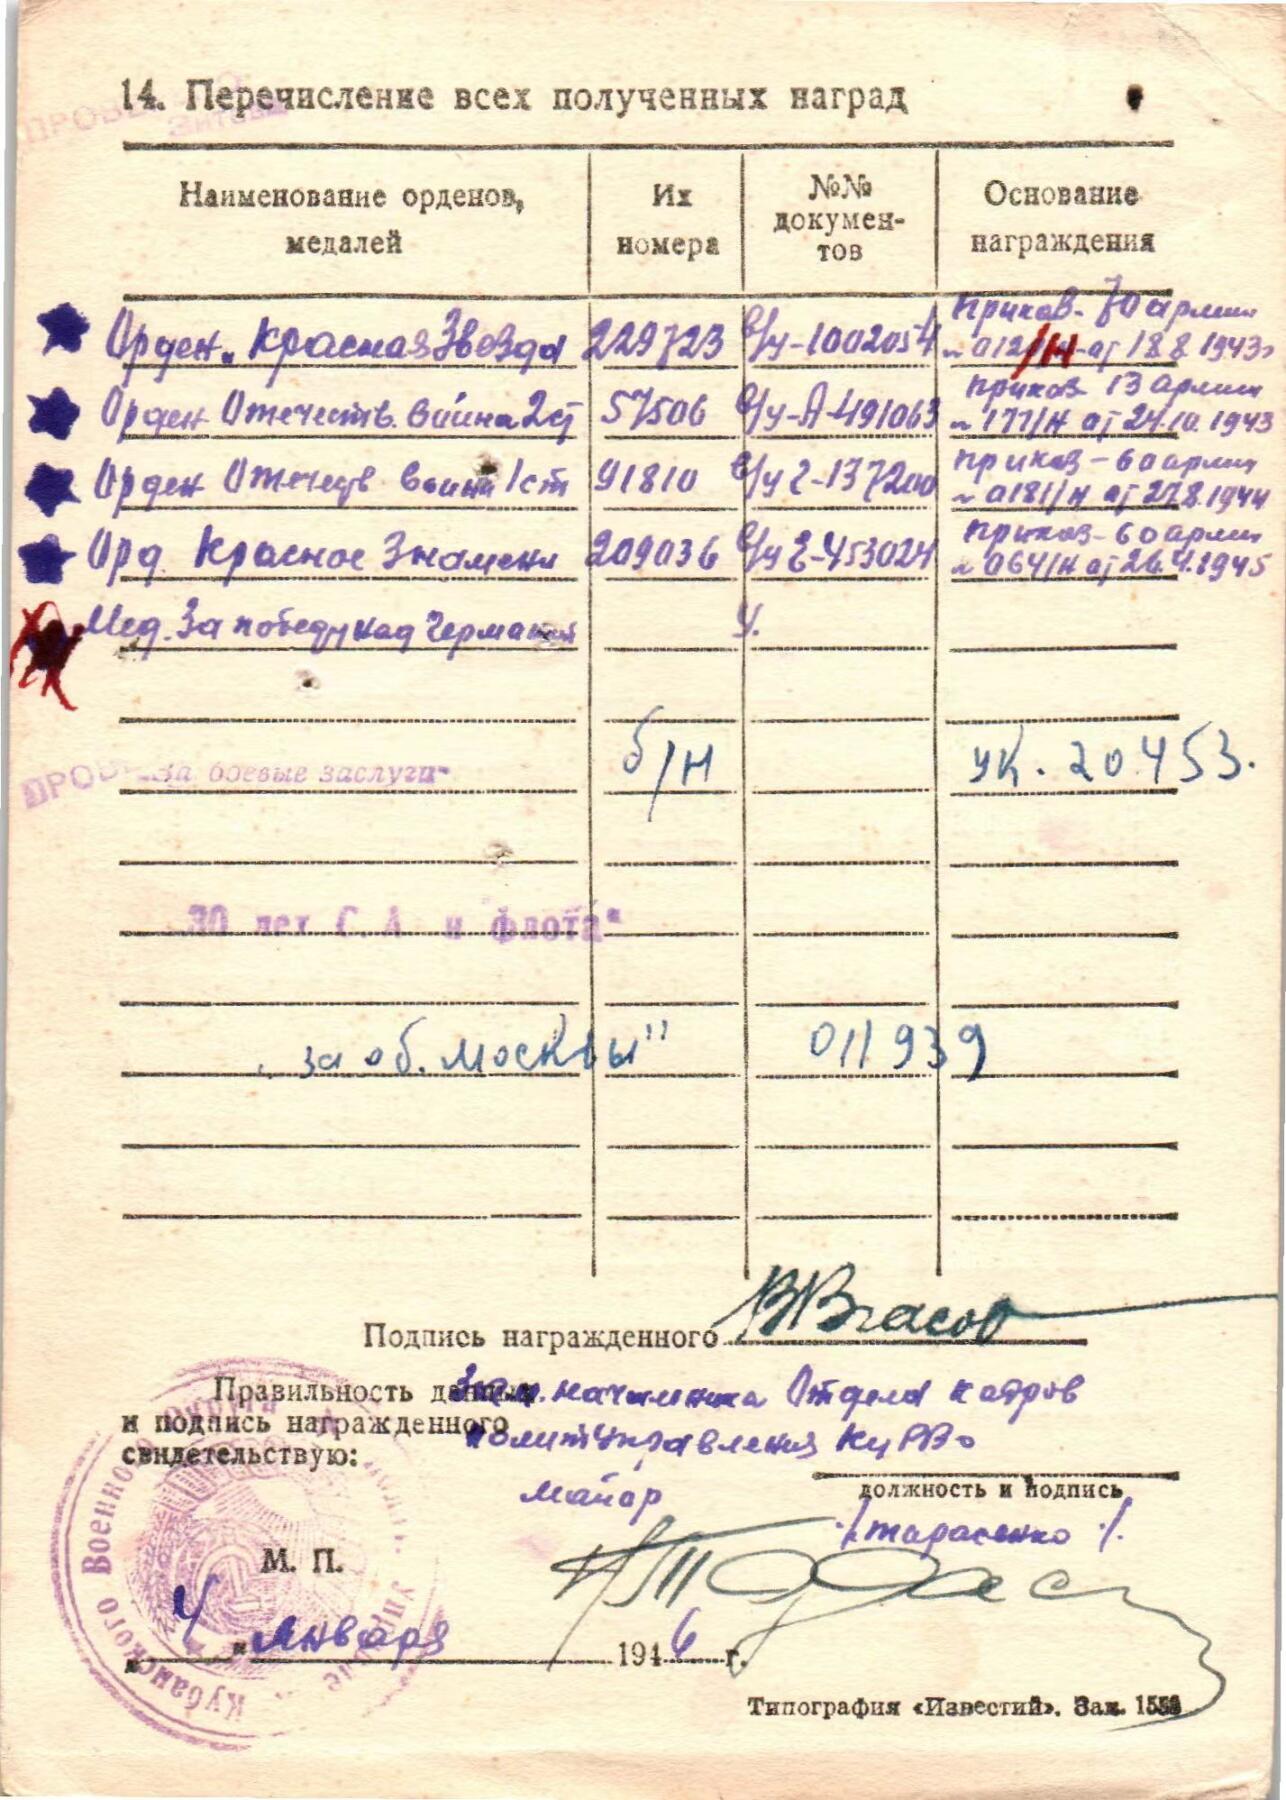 14. Перечисление всех полученных наград
Наименование орденов, медалей
Их номера
№№ докумен-тов
Основание награждения
приказ. 70 армии
Орден „Красная Звезда 229723 в/у-1002054 № 012/Н от 18.8.1943г
приказ 13 армии
Орден Отечеств. Война 2ст 57506 в/у-А-491063 № 177/Н от 24.10.1943
приказ-60 армии
Орден Отечеств Войны 1 ст 91810 в/у Г-137200 № 0181/Н от 27.8.1944
приказ-60 армии
Орд. Красное Знамени 209036 в/у Е-453024 № 064/Н от 26.4.1945
Мед. За победу над Германией У.
„За боевые заслуги" б/н УК. 20.4.53.
30 лет С. А. и флота"
„за об. Москвы" 011939
Подпись награжденного В Власов
Правильность данных Зам. начальника Отдела кадров
и подпись награжденного политуправления КуВО
свидетельствую:
майор
должность и подпись
/Тарасенко/.
М. П.
„4" января 1946 г.
Кубанского Военного Округа
Типография «Известий». Зак.